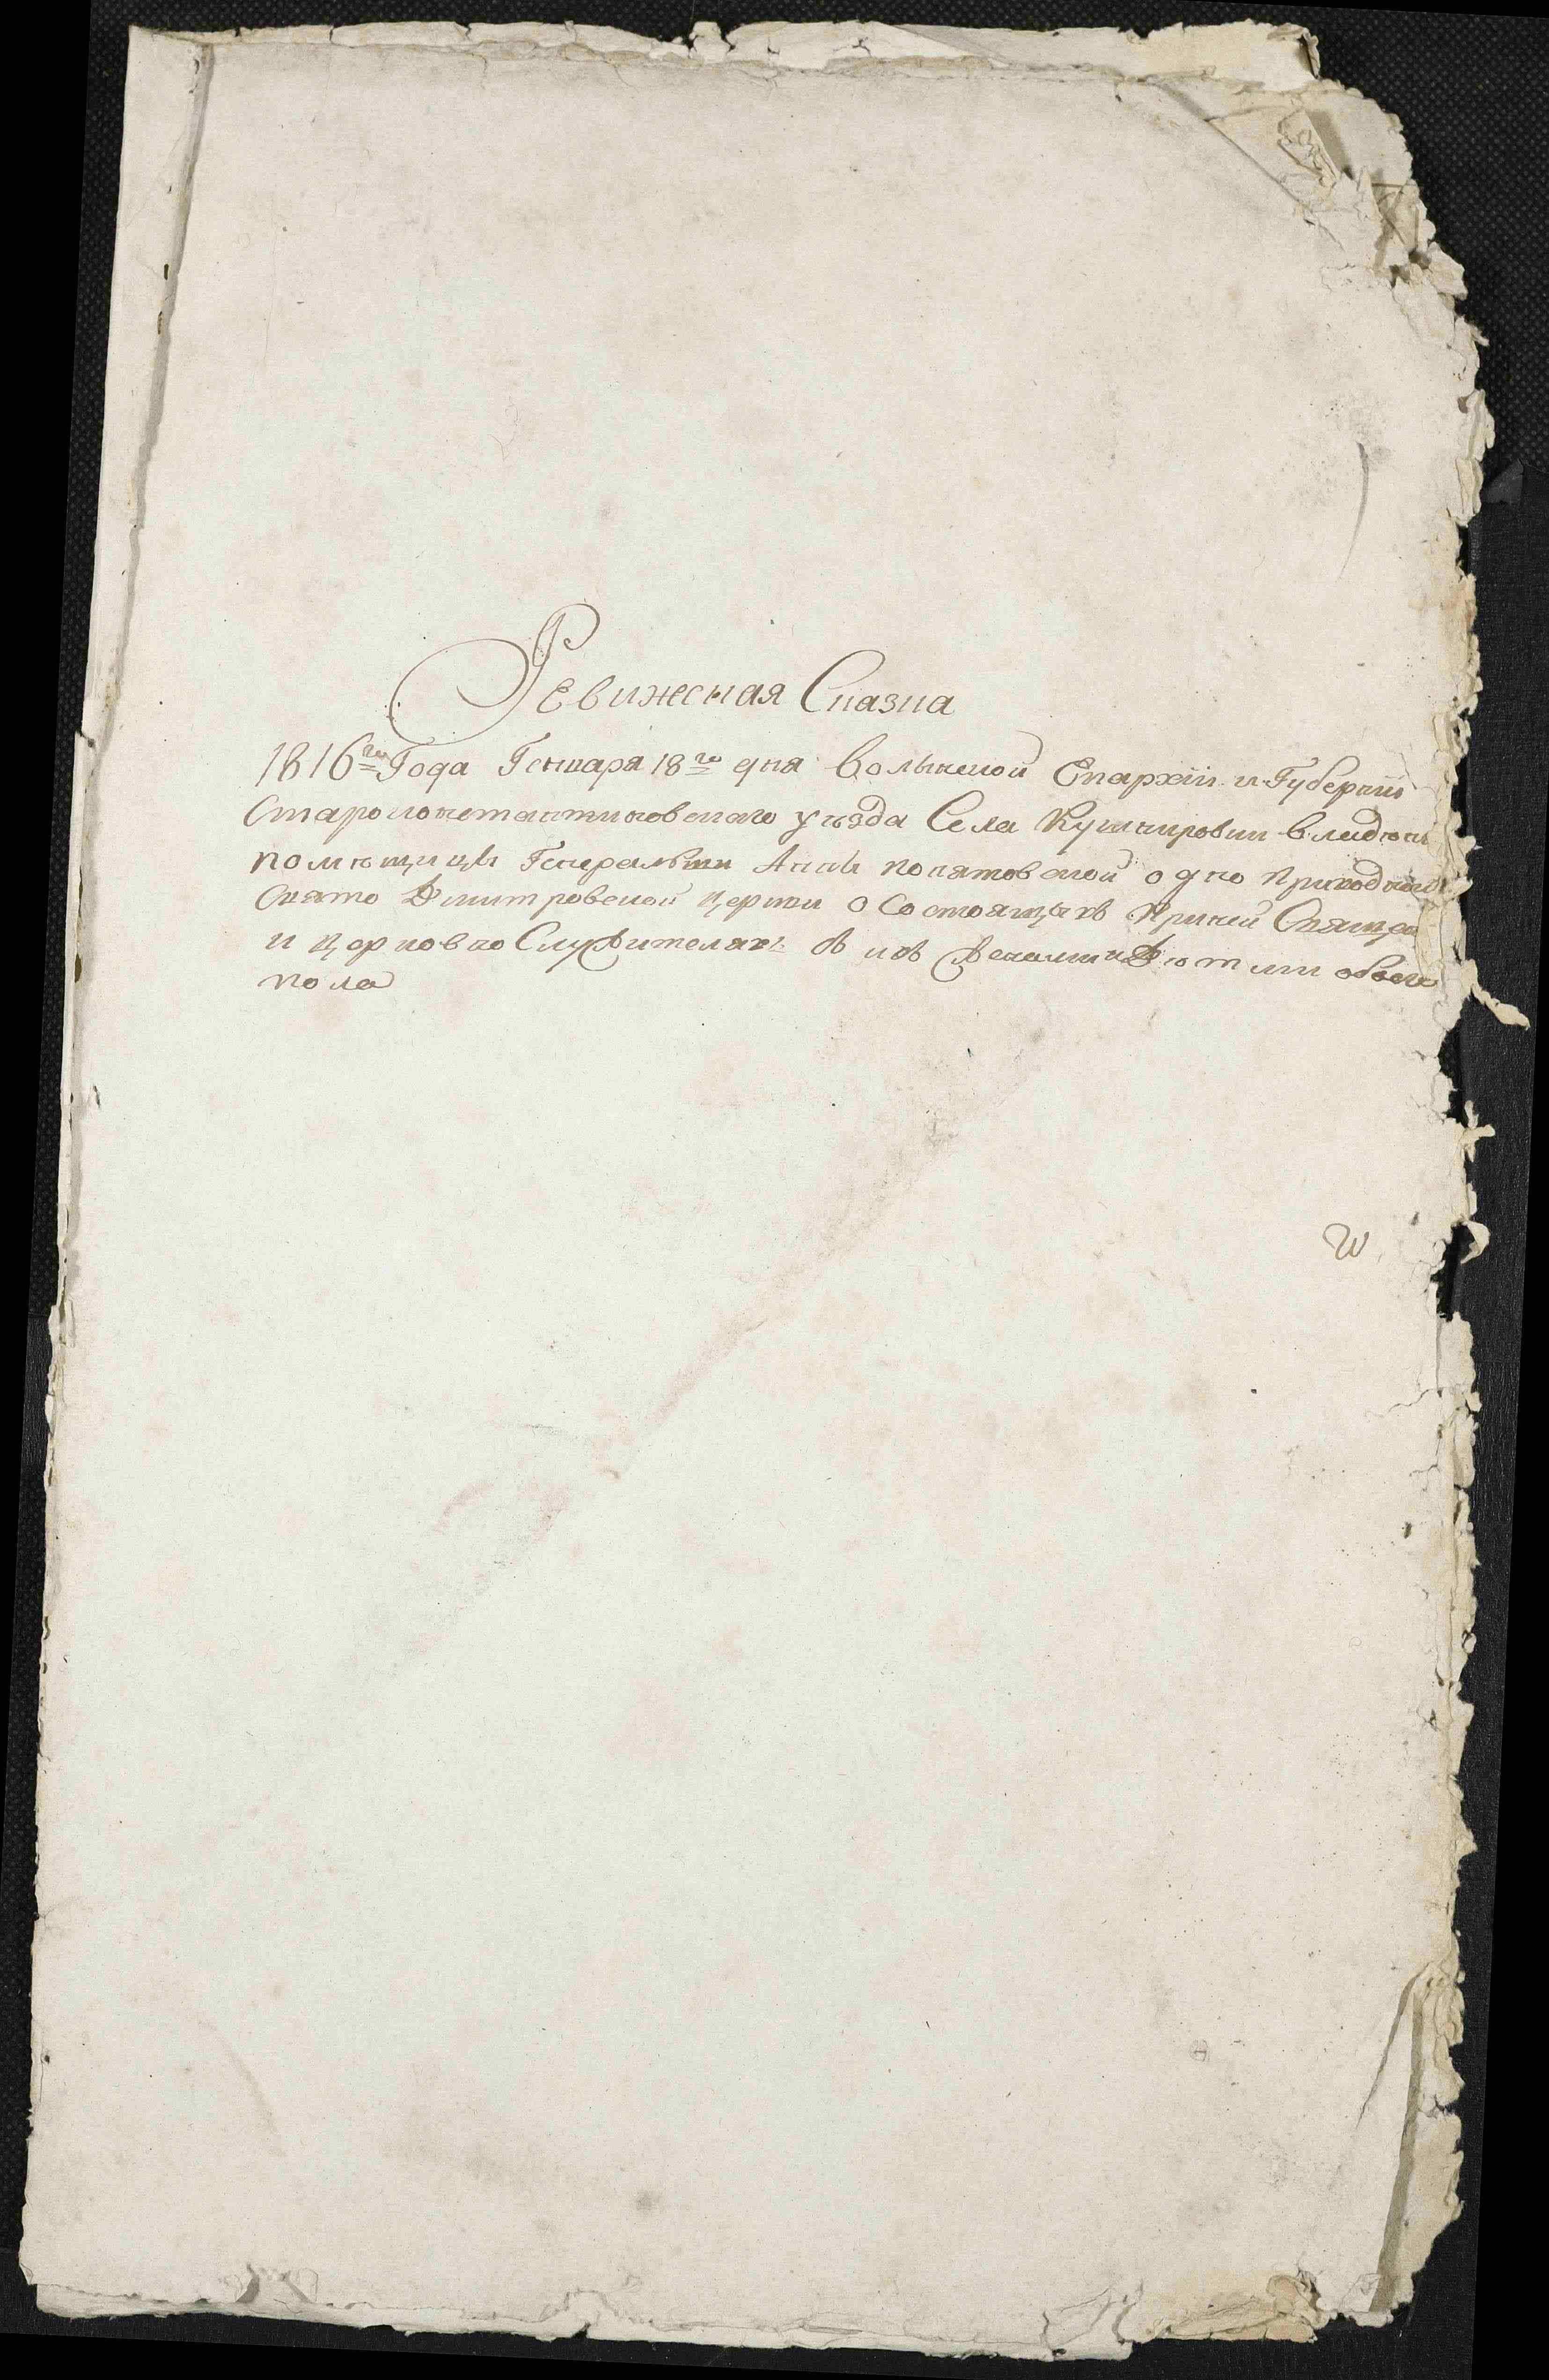 Ревижская Сказка
1816го Года Генваря 18го дня Волынской Епархіи и Губерніи
Староконстантиновского уѣзда Села Кушнировки владѣнія
помѣщицы Генеральши Анны Понятовской одно приходной
Свято Димитровской церкви о Состоящихъ При ней Священо
и церковно Служителяхъ съ ихъ Женами и Дѣтьми обоего
пола